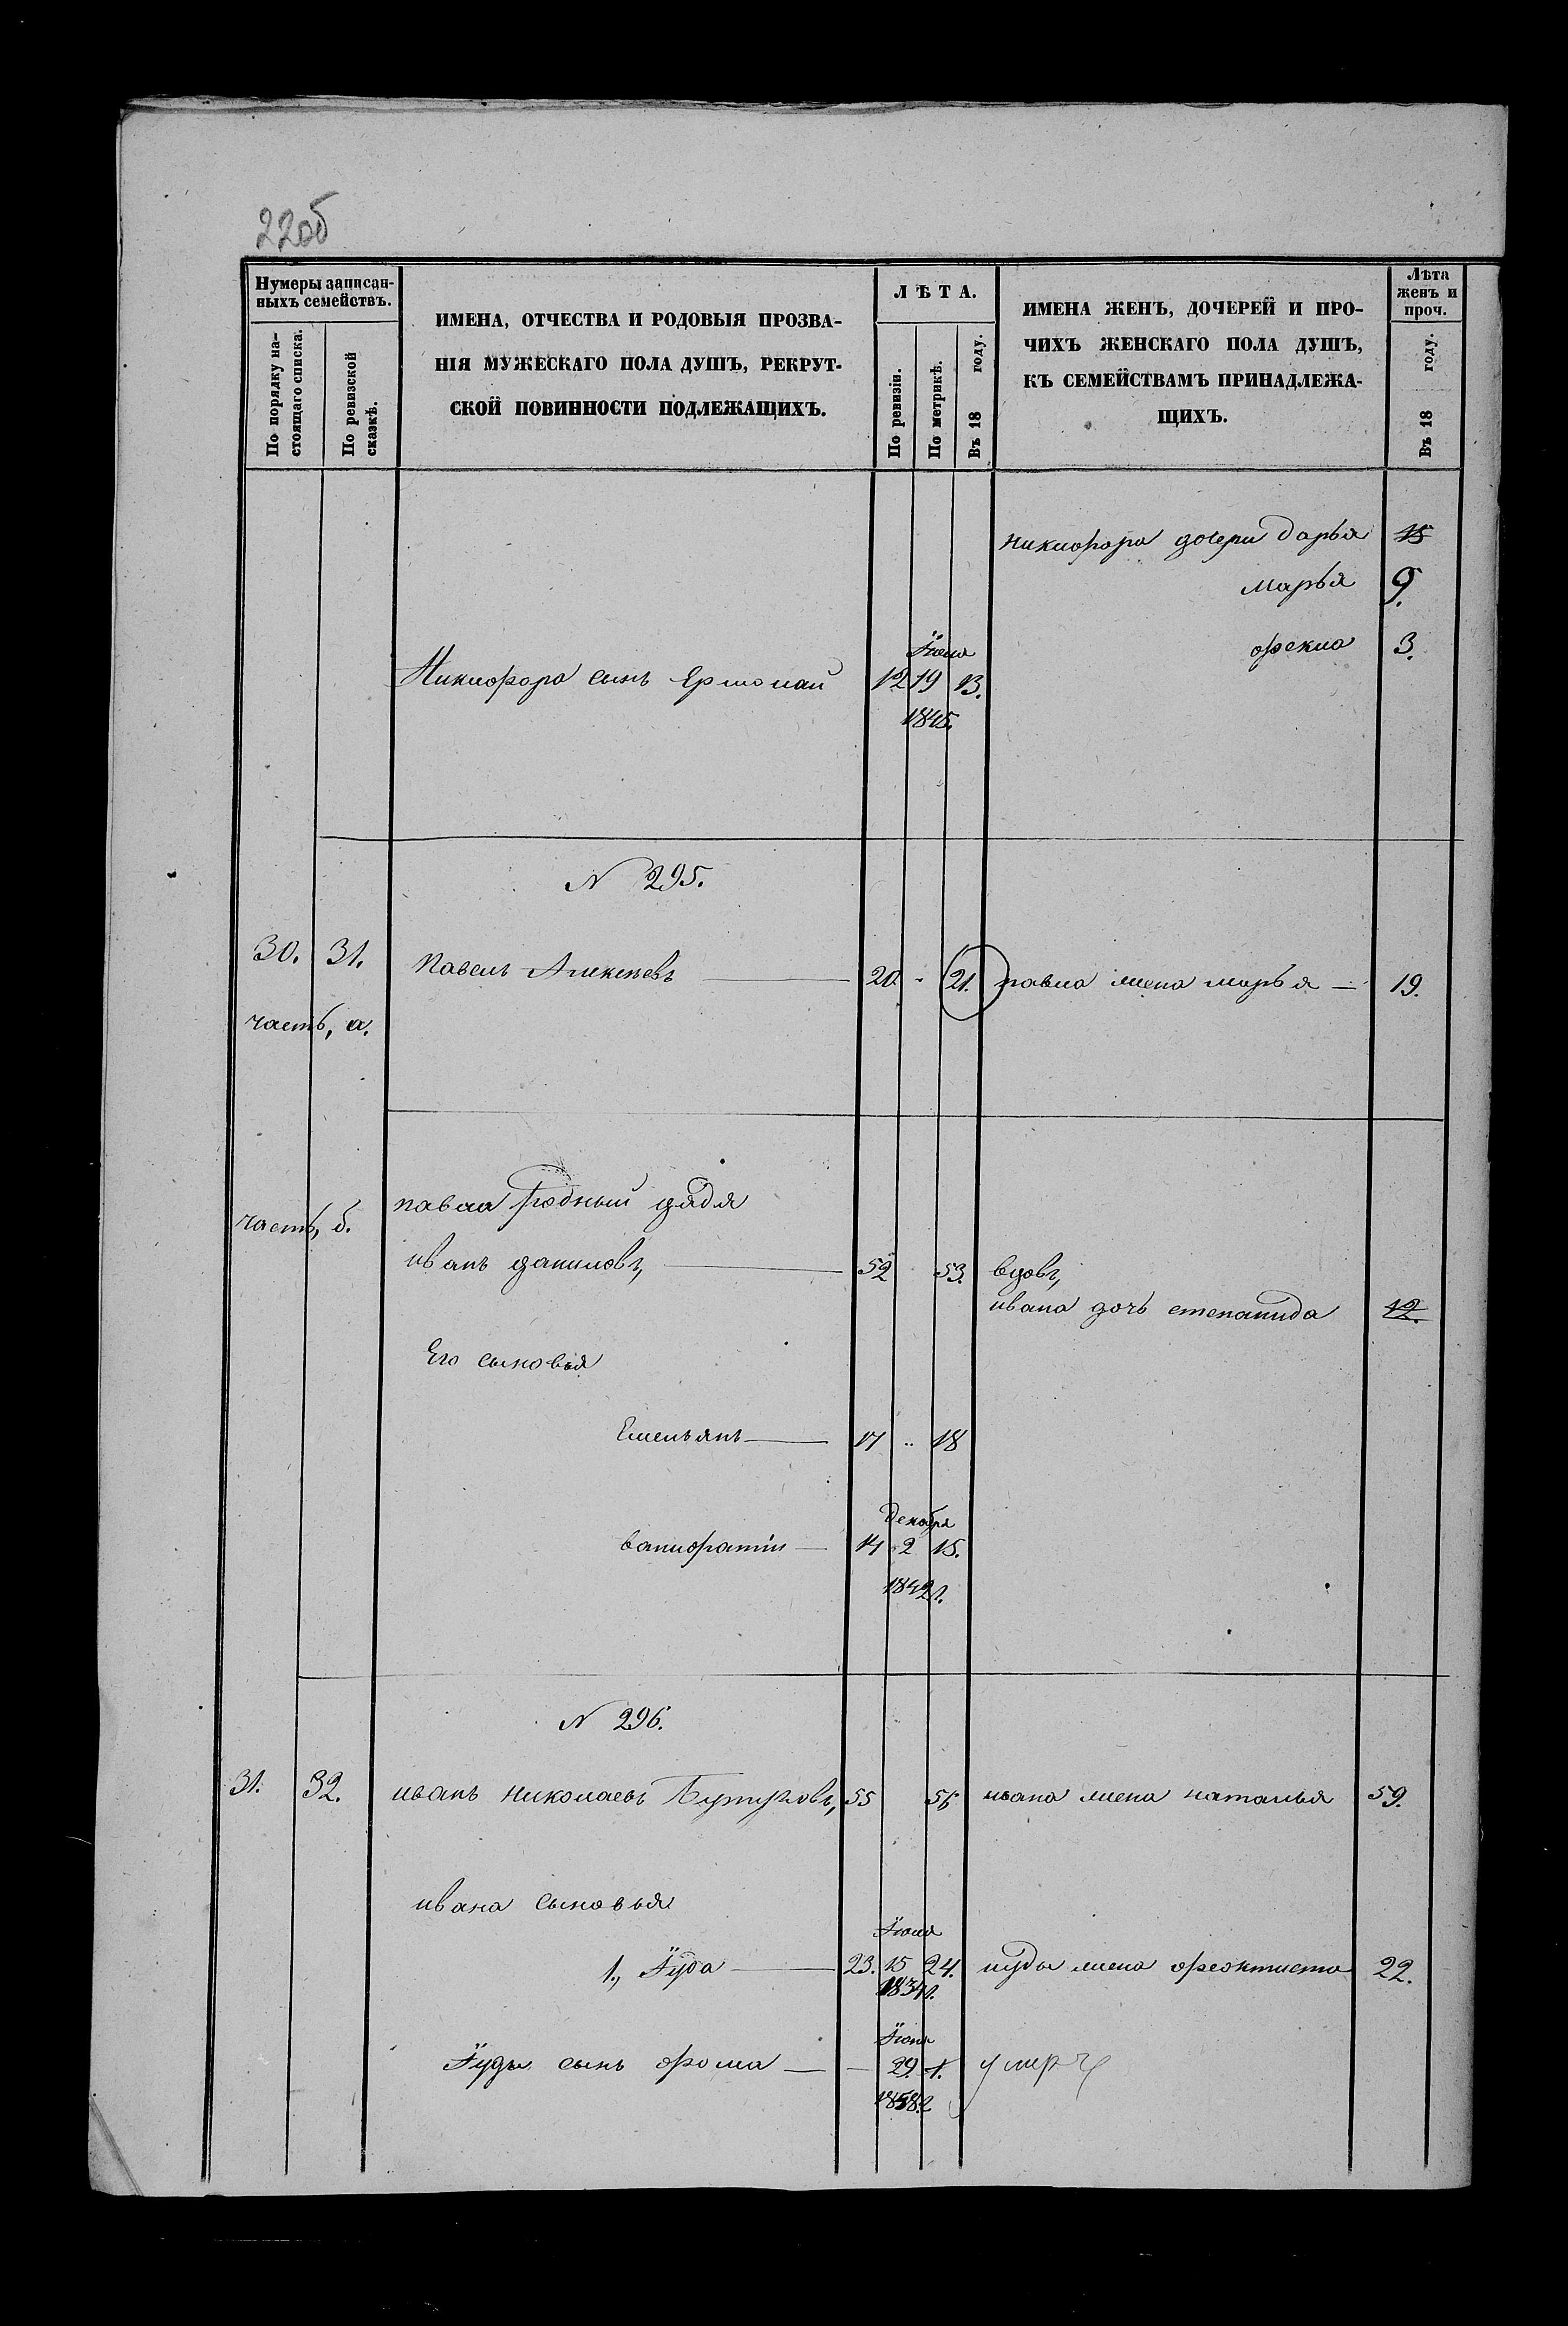 22об
Нумеры записан-
ныхъ семействъ.
По порядку на-
стоящаго списка.
По ревизской
сказкѣ.
ИМЕНА, ОТЧЕСТВА И РОДОВЫЯ ПРОЗВА-
НІЯ МУЖЕСКАГО ПОЛА ДУШЪ, РЕКРУТ-
СКОЙ ПОВИННОСТИ ПОДЛЕЖАЩИХЪ.
ЛѢТА.
По ревизіи.
По метрикѣ.
Въ 18 году.
ИМЕНА ЖЕНЪ, ДОЧЕРЕЙ И ПРО-
ЧИХЪ ЖЕНСКАГО ПОЛА ДУШЪ,
КЪ СЕМЕЙСТВАМЪ ПРИНАДЛЕЖА-
ЩИХЪ.
Лѣта
женъ и
проч.
Въ 18 году.
никифора дочери дарья 15
марья 9.
фекла 3.
Никифора сынъ Ермолай 12 19 13.
1845.
N 295.
30. 31. Павелъ Алексѣевъ 20. 21. павла жена марья 19.
часть, а.
часть, б. павла родный дядя
иванъ даниловъ, 52 53. вдовъ,
ивана дочь степанида 12.
Его сыновья
Емельянъ 17 18
декабря
ванифатій 14 2 15.
1842 г.
N 296.
31. 32. иванъ николаевъ 55 56 ивана жена наталья 59.
ивана сыновья
1., Іуда 23. 15 24. иуды жена феоктиста 22.
1834 г.
Іуды сынъ фома 29 1.
1858 г.